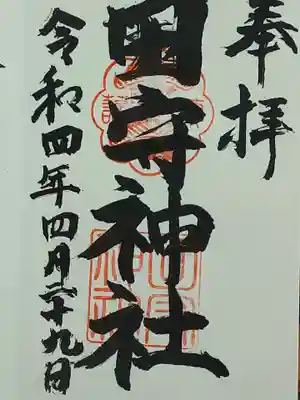 奉拝
田守神社
令和四年四月二十九日